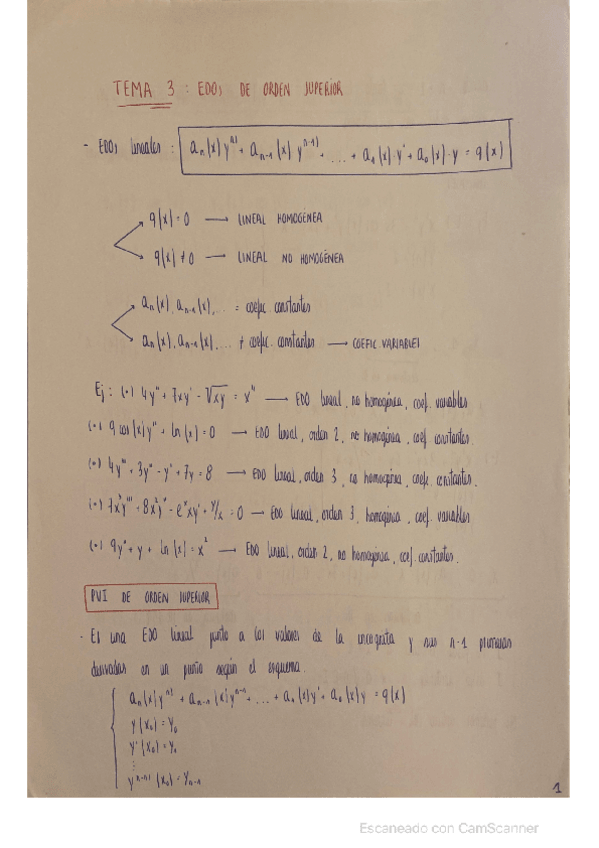 TEMA 3 : EDOs DE ORDEN SUPERIOR
- EDOs lineales : aₙ(x) y⁽ⁿ⁾ + aₙ₋₁(x) y⁽ⁿ⁻¹⁾ + ... + a₁(x) · y' + a₀(x) · y = q(x)
q(x) = 0 → LINEAL HOMOGÉNEA
q(x) ≠ 0 → LINEAL NO HOMOGÉNEA
aₙ(x), aₙ₋₁(x), ... = coefic. constantes
aₙ(x), aₙ₋₁(x), ... ≠ coefic. constantes → COEFIC. VARIABLES
Ej : (·) 4y'' + 7xy' - √xy = x⁴ → EDO lineal, no homogénea, coef. variables
(·) 9 cos(x) y'' + ln(x) = 0 → EDO lineal, orden 2, no homogénea, coef. constantes.
(·) 4y''' + 3y'' - y' + 7y = 8 → EDO lineal, orden 3, no homogénea, coefic. constantes.
(·) 7x³y''' + 8x²y'' - eˣxy' + y/x = 0 → EDO lineal, orden 3, homogénea, coef. variables
(·) 9y'' + y + ln(x) = x² → EDO lineal, orden 2, no homogénea, coef. constantes.
PVI DE ORDEN SUPERIOR
- Es una EDO lineal junto a los valores de la incognita y sus n-1 primeras
derivadas en un punto según el esquema.
aₙ(x) y⁽ⁿ⁾ + aₙ₋₁(x) yⁿ⁻¹ + ... + a₁(x) y' + a₀(x) y = q(x)
y(x₀) = y₀
y'(x₀) = y₁
⋮
y⁽ⁿ⁻¹⁾(x₀) = yₙ₋₁
1
Escaneado con CamScanner